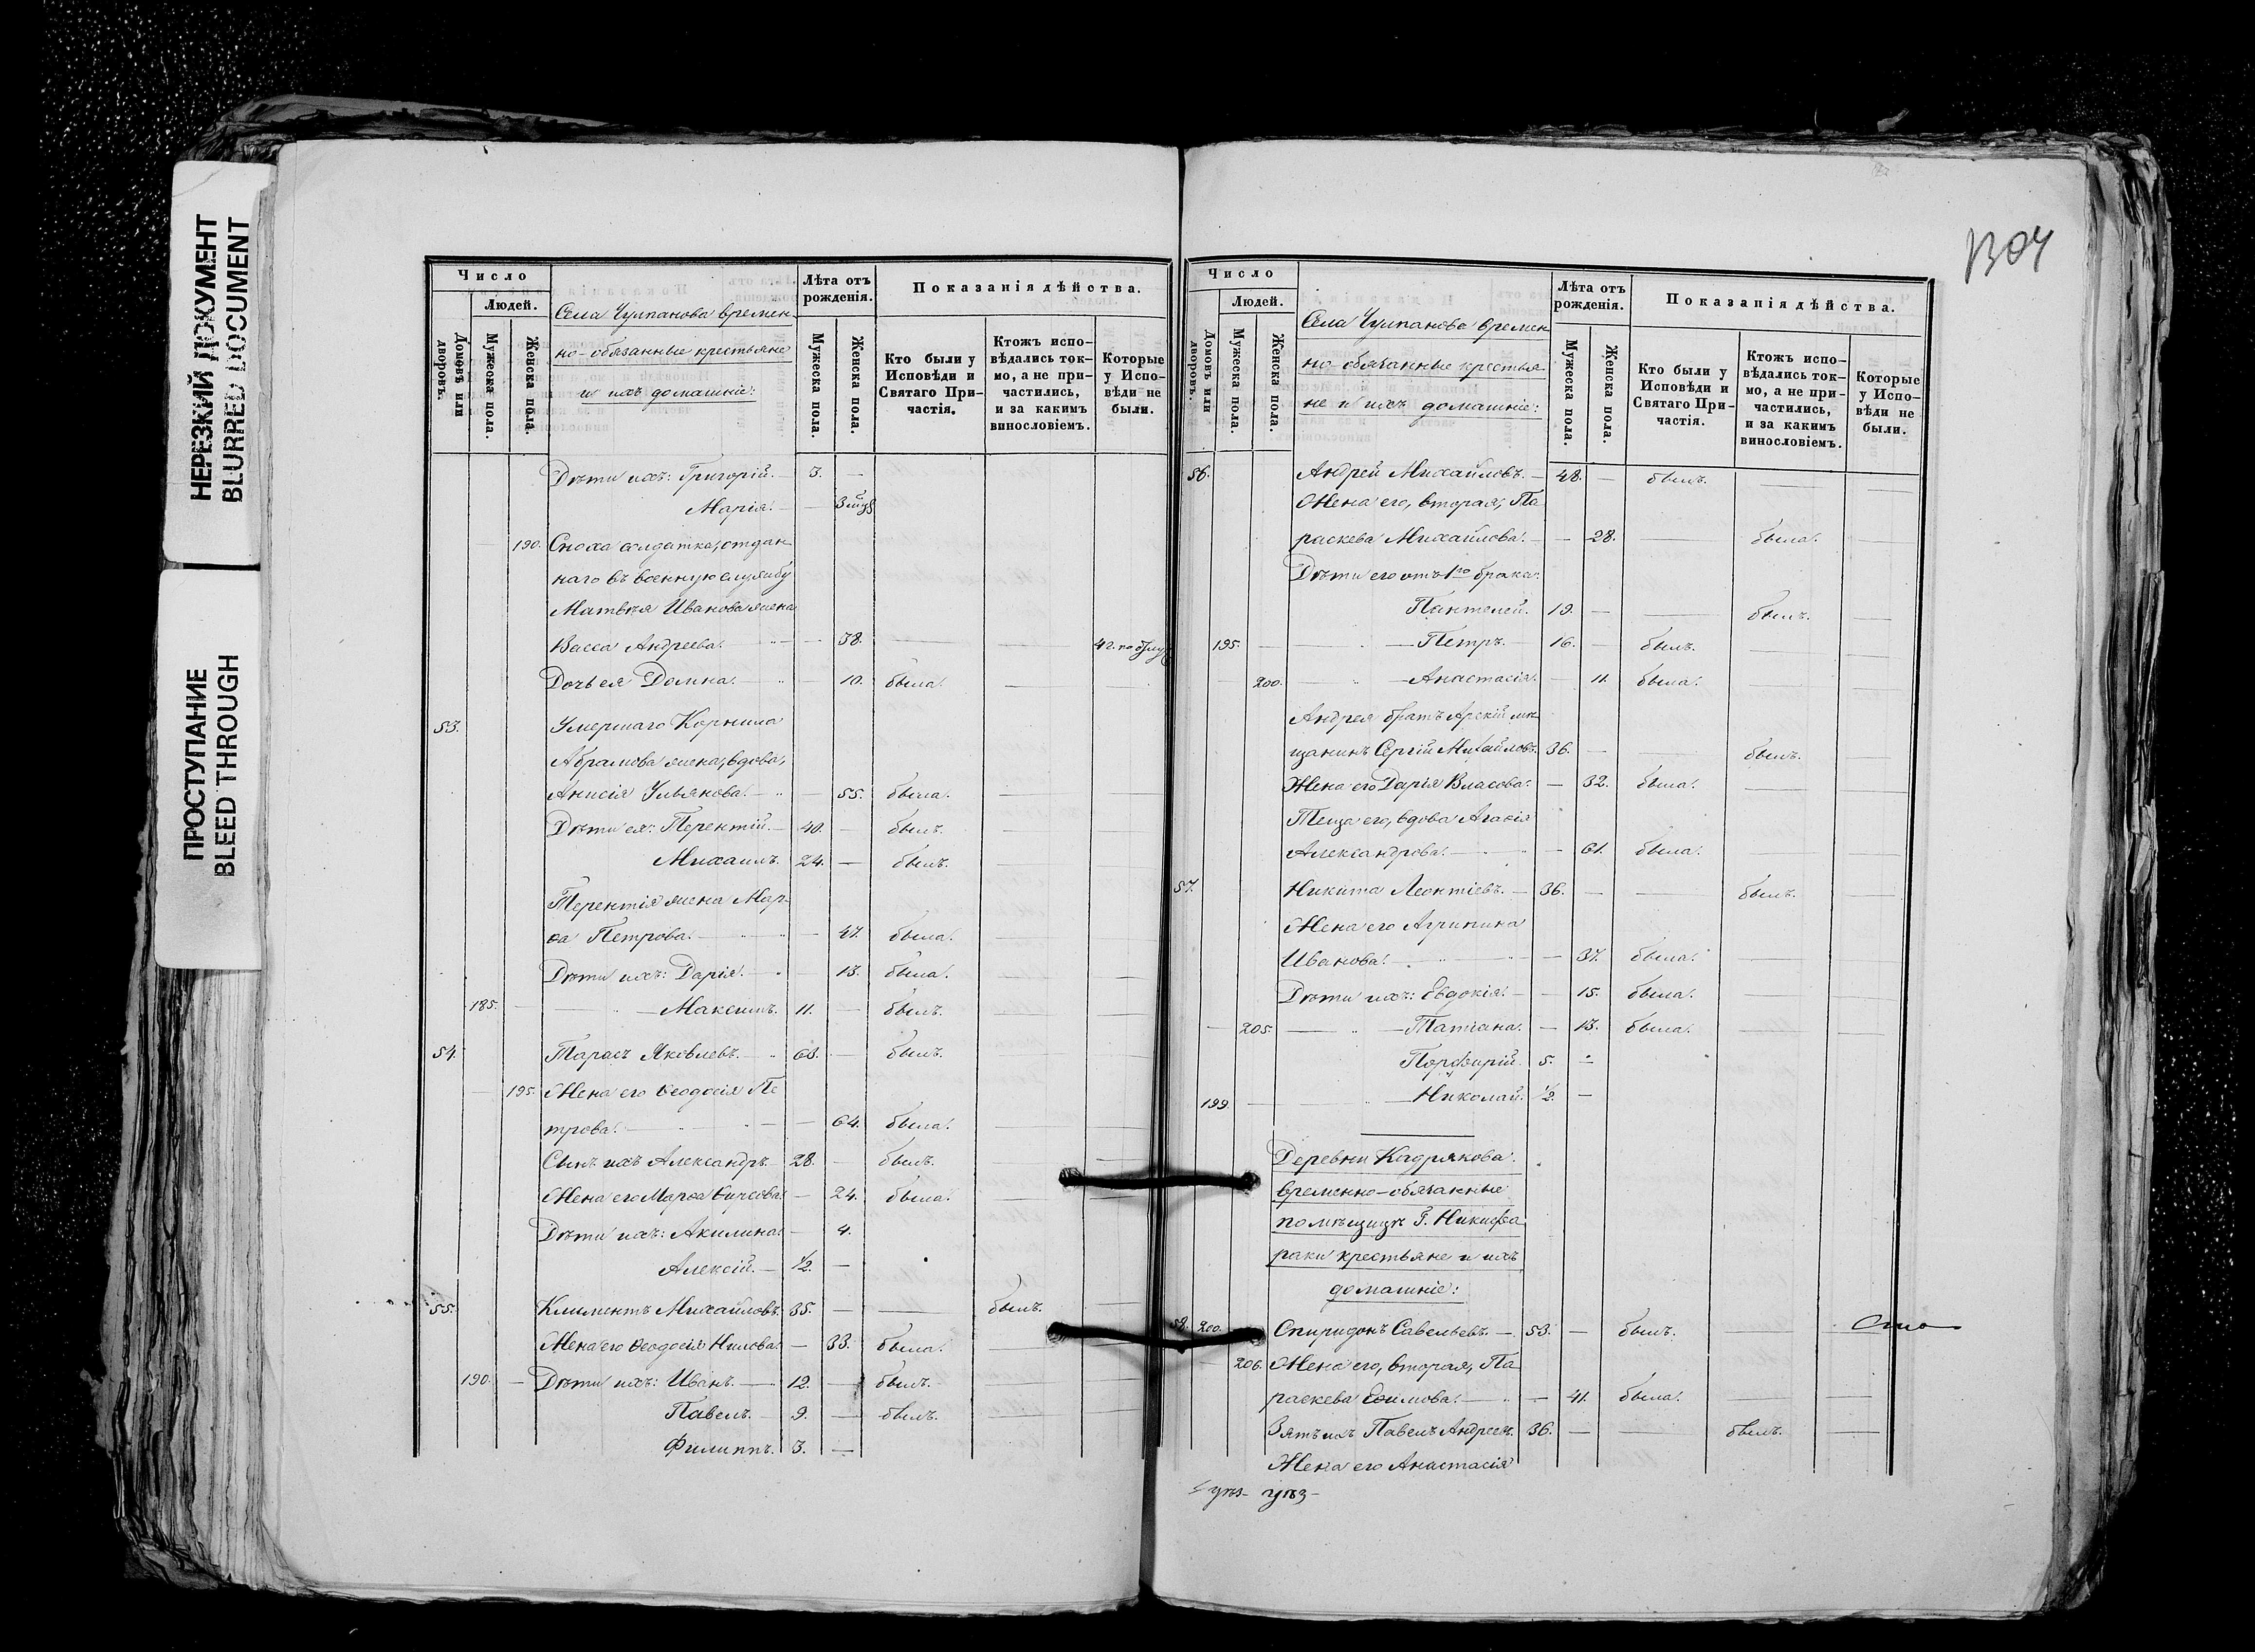 НЕРЕЗКИЙ ДОКУМЕНТ
BLURRED DOCUMENT
ПРОСТУПАНИЕ
BLEED THROUGH
Число
Людей.
Домовъ или дворовъ.
Мужеска пола.
Женска пола.
Села Чулпанова времен
но-обязанные крестьяне
и ихъ домашніе:
Лѣта отъ рожденія.
Мужеска пола.
Женска пола.
Показанія дѣйства.
Кто были у Исповѣди и Святаго При-частія.
Ктожъ испо-вѣдались ток-мо, а не при-частились, и за какимъ винословіемъ.
Которые у Испо-вѣди не были.
Дѣти ихъ: Григорій. 3. —
Марія. —
190. Сноха солдатка, отдан
наго въ военную службу
Матвѣя Иванова жена
Васса Андреева. — 38. — —
Дочь ея Домна. — 10. была. — —
53. Умершаго Корнила
Абрамова жена, вдова,
Анисія Ульянова. — 55. была. —
Дѣти ея: Терентій. 40. — былъ. —
Михаилъ. 24. — былъ. —
Терентія жена Мар-
ѳа Петрова. — 47. была. —
Дѣти ихъ: Дарія. — 13. была. — —
185. — Максимъ. 11. — былъ. — —
54. Тарасъ Яковлевъ. 68. — былъ. —
195. Жена его Ѳеодосія Пе
трова. — 64. была. —
Сынъ ихъ Александръ. 28. — былъ. —
Жена его Марѳа — 24. была. —
Дѣти ихъ: Акилина. — 4.
Алексій. 1/2. —
55. Климентъ Михайловъ. 35. — — былъ. —
Жена его Ѳеодосія Нилова. — 33. была. —
190. — Дѣти ихъ: Иванъ. 12. — былъ. —
Павелъ. 9. — былъ. — —
Филиппъ. 3. —
1304
Число
Людей.
Домовъ или дворовъ.
Мужеска пола.
Женска пола.
Села Чулпанова времен
но-обязанные крестья
не и ихъ домашніе:
Лѣта отъ рожденія.
Мужеска пола.
Женска пола.
Показанія дѣйства.
Кто были у Исповѣди и Святаго При-частія.
Ктожъ испо-вѣдались ток-мо, а не при-частились, и за какимъ винословіемъ.
Которые у Испо-вѣди не были.
56. Андрей Михайловъ. 48. — былъ. — —
Жена его, вторая, Па
раскева Михайлова. — 28. — была. —
Дѣти его отъ 1го брака:
Пантелей. 19. — — былъ. —
195. — Петръ. 16. — былъ. — —
200. — Анастасія. — 11. была. — —
Андрея братъ Арскій мѣ
щанинъ Сергій Михайловъ. 36. — — былъ. —
Жена его Дарія Власова. — 32. была. — —
Теща его, вдова Агаѳія
Александрова. — 61. была. — —
57. Никита Леонтіевъ. 36. — — былъ. —
Жена его Агрипина
Иванова. — 37. была. —
Дѣти ихъ: Евдокія. — 15. была.
205. — Татіана. — 13. была. — —
Порфирій. 5. —
199. — Николай. 1/2. —
Деревни Кадрякова
временно-обязанные
помѣщицѣ Г. Никифа
раки крестьяне и ихъ
домашніе:
58. 200. Спиридонъ Савельевъ. 53. — былъ. —
206. Жена его, вторая, Па
раскева Еѳимова. — 41. была. — —
Зять ихъ Павелъ Андреевъ. 36. — — былъ. —
Жена его Анастасія